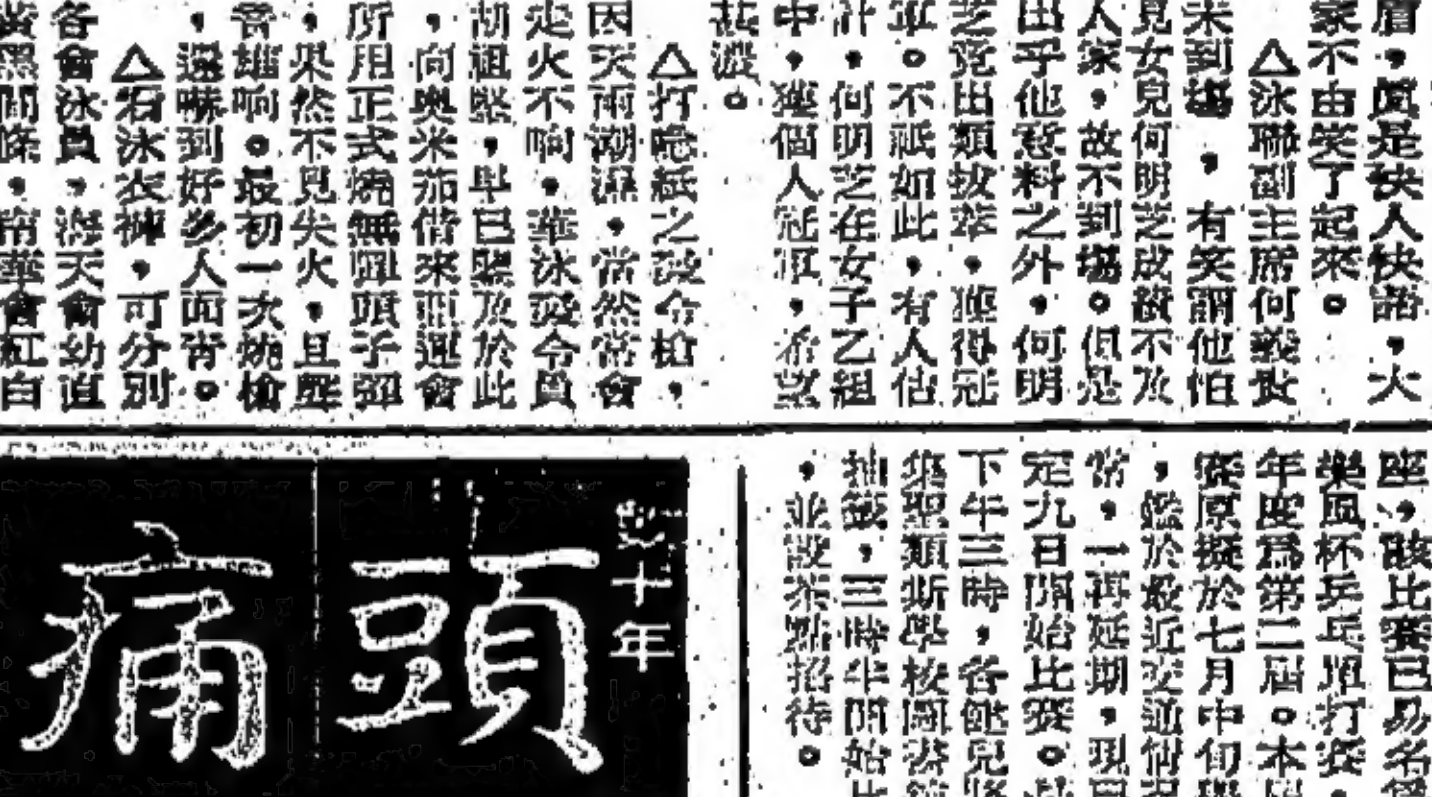 眉，真是快人快語，大
家不由笑了起來。
△泳聯副主席何義貴
未到場，有笑謂他怕
見女兒何明芝成績不及
人家，故不到場。但是
出乎他意料之外，何明
芝竟出類拔萃，獲得冠
軍。不祇如此，有人估
計，何明芝在女子乙組
中，獲個人冠軍，希望
甚濃。
△打唸紙之發令槍，
因天雨潮濕，當然常會
走火不响，華泳發令員
胡祖堅，早已鑒及於此
，向奧米茄借來亞運會
所用正式燒無彈頭子彈
，果然不見失火，且聲
音雄响。最初一次燒槍
，還嚇到好多人面青。
△右泳衣褲，可分別
各會泳員，海天會幼直
黃黑間條，南華會紅白
座，該比賽已易名為
樂風杯乒乓單打賽
年度為第二屆。本
賽原擬於七月中旬
，鑑於最近交通情况
常，一再延期，現
定九日開始比賽。
下午三時，各健兒
集聖類斯學校
抽籤，三時半開始
，並設茶點招待。
數十年
頭痛